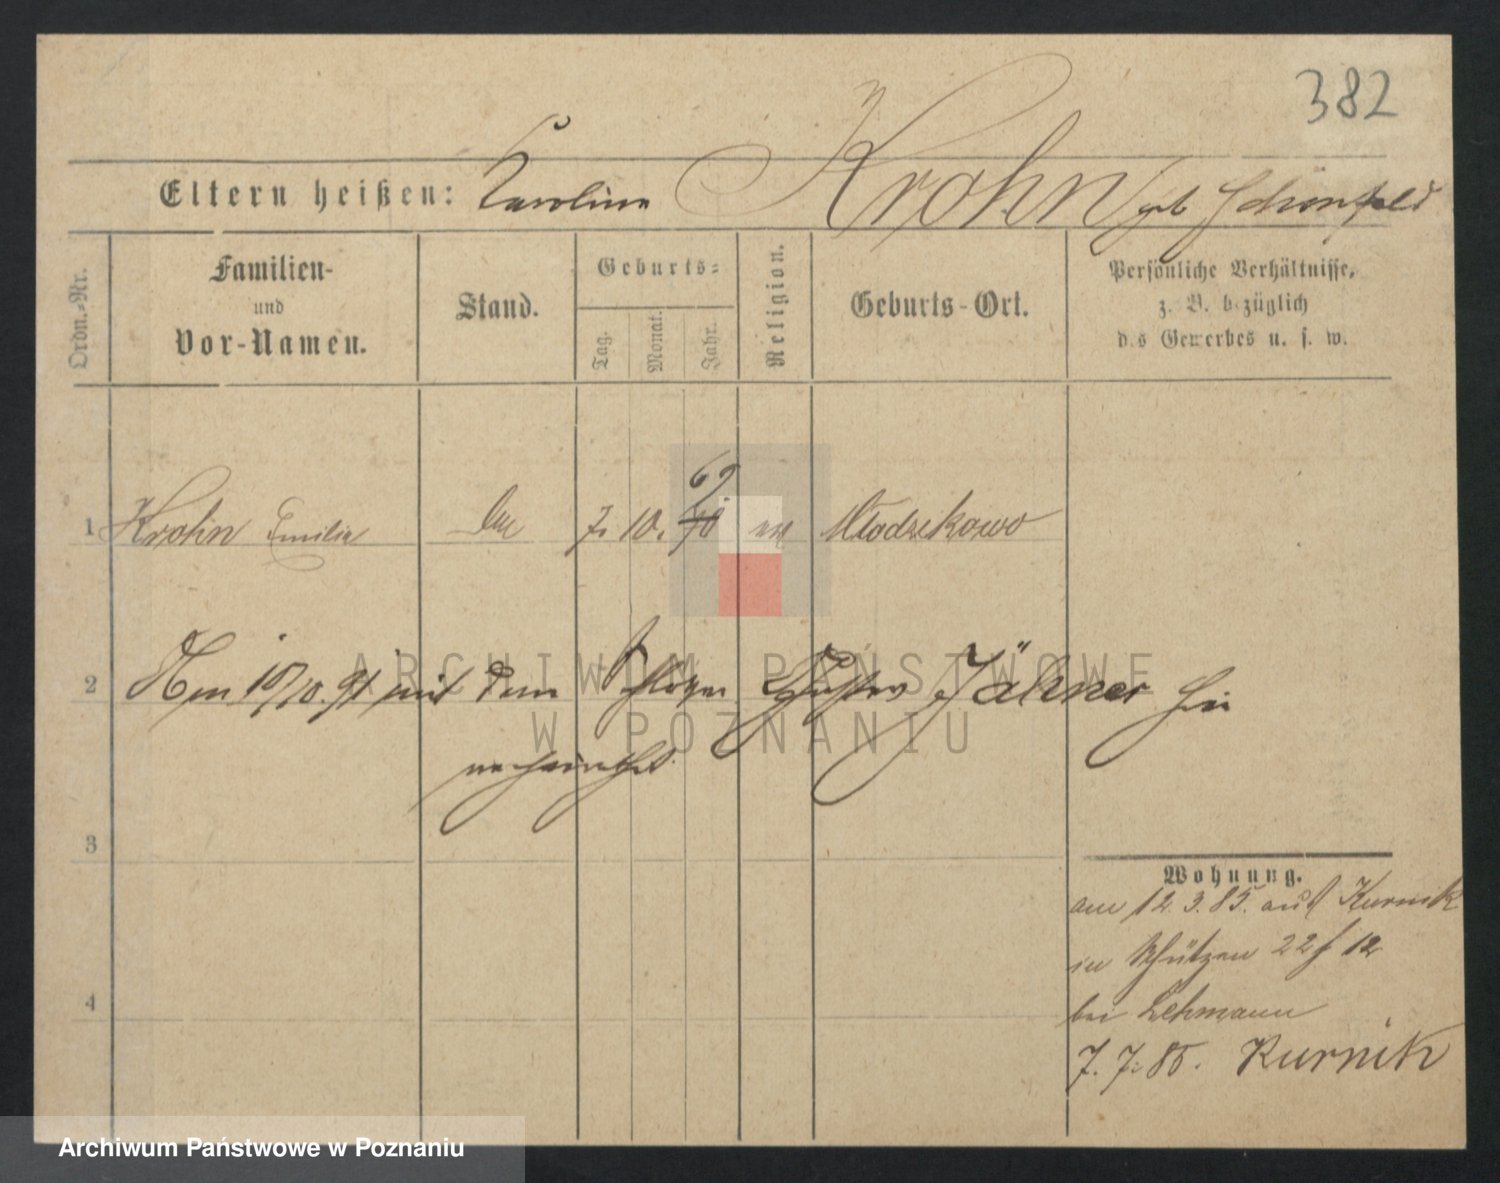 382
Eltern heißen: Karoline Krohn geb Schönfeld
Ordn.-Nr.
Familien-
und
Vor-Namen.
Stand.
Geburts-
Tag.
Monat.
Jahr.
Religion.
Geburts-Ort.
Persönliche Verhältnisse,
z. B. bezüglich
des Gewerbes u. s. w.
69
1 Krohn Emilie 7. 10. 70 ev Mlodzikowo
2 mit dem Gustav Jähner hier
verheirathet.
3
Wohnung.
am 12. 3. 85. aus Kurnik
in Schützen 22 f 12
bei Lehmann
4
7. 7. 85. Kurnik
ARCHIWUM PAŃSTWOWE
W POZNANIU
Archiwum Państwowe w Poznaniu